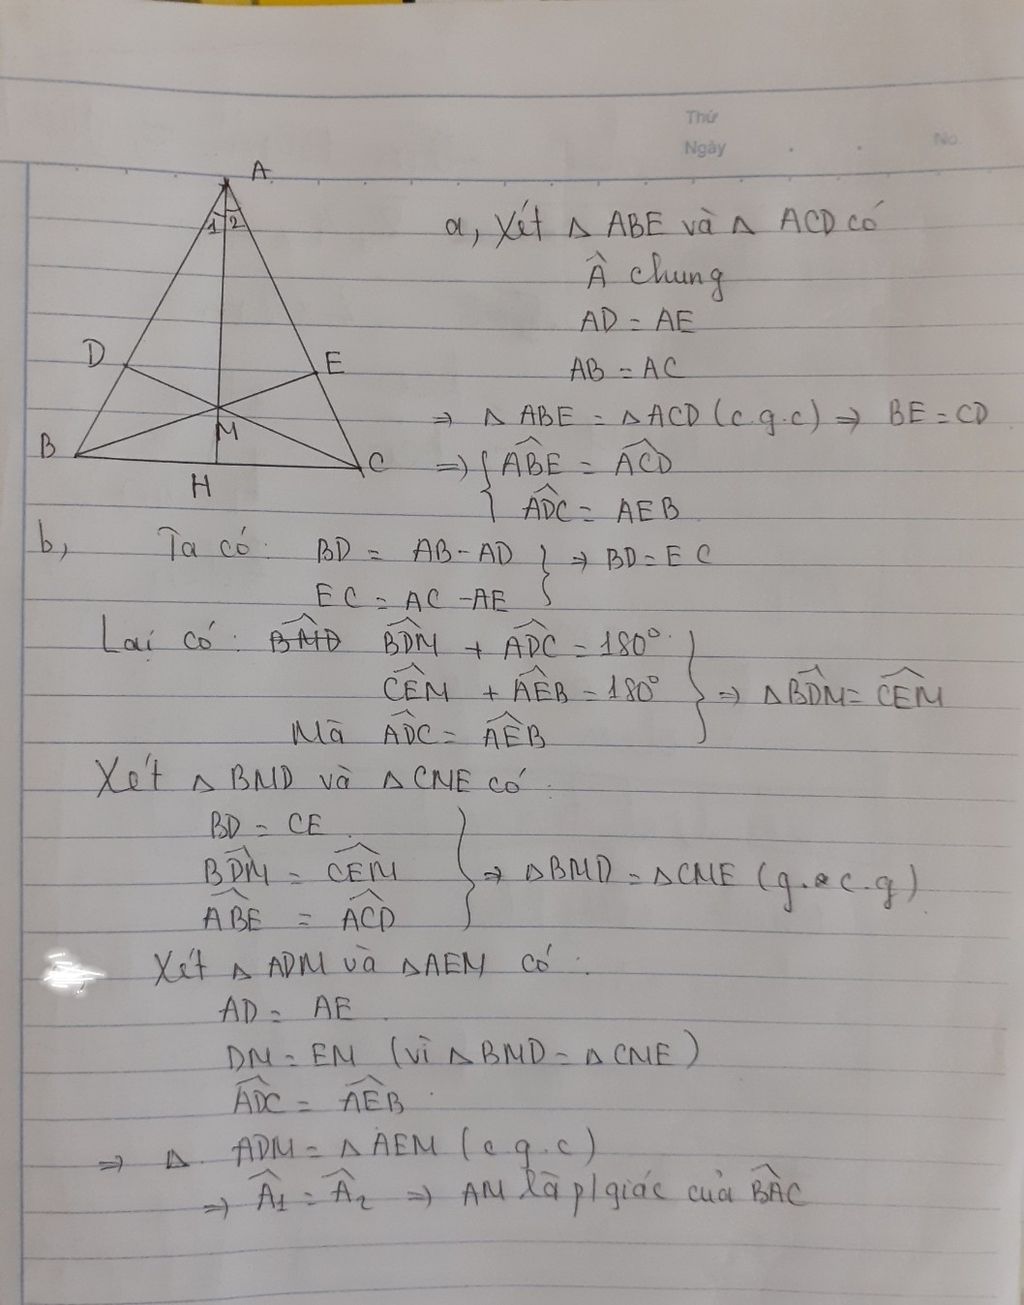 Thứ
Ngày
No.
A
1 2
D
E
B
M
C
H
a, Xét Δ ABE và Δ ACD có
Â chung
AD = AE
AB = AC
⇒ Δ ABE = Δ ACD (c.g.c) ⇒ BE = CD
⇒ { ABE = ACD
ADC = AEB
b, Ta có: BD = AB - AD } ⇒ BD = EC
EC = AC - AE
Lại có: BMD BDM + ADC = 180°
CEM + AEB = 180° } ⇒ Δ BDM = CEM
Mà ADC = AEB
Xét Δ BMD và Δ CME có:
BD = CE
BDM = CEM } ⇒ Δ BMD = Δ CME (g.c.g)
ABE = ACD
Xét Δ ADM và Δ AEM có:
AD = AE
DM = EM (vì Δ BMD = Δ CME)
ADC = AEB
⇒ Δ ADM = Δ AEM (c.g.c)
⇒ Â1 = Â2 ⇒ AM là p/giác của BAC